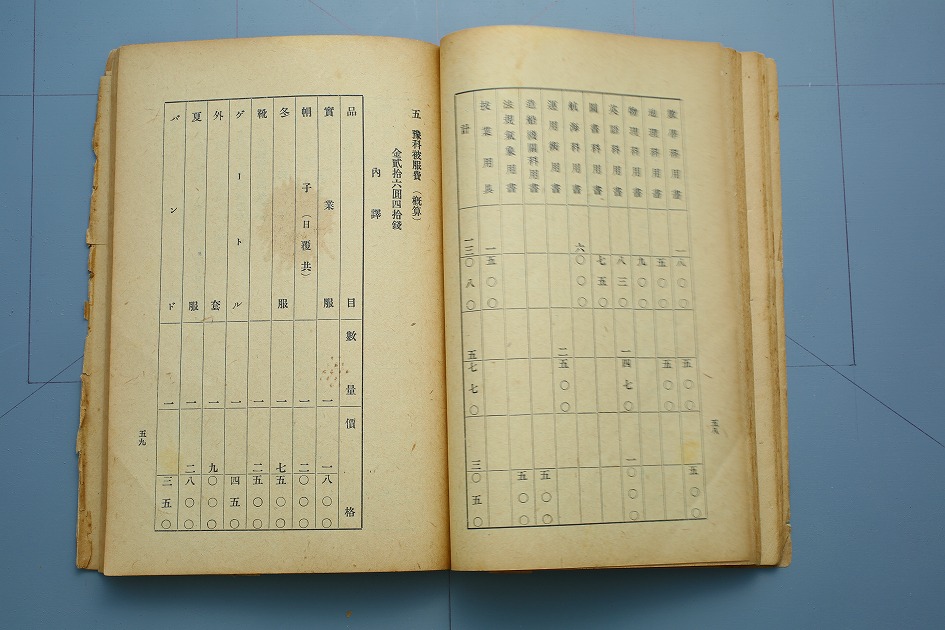 數學科用書 一八〇〇 五〇〇 五〇〇
地理科用書 五〇〇 五〇〇
物理科用書 九〇〇
英語科用書 八三〇 一四七〇 一〇〇〇
圖書科用書 七五〇
航海科用書 六〇〇〇
運用術用書 二五〇〇
造船機關科用書 五〇〇
法規氣象用書 五〇〇
授業用具 一五〇〇
計 一三〇八〇 五七七〇 三〇五〇
五八
五 豫科被服費(概算)
金貳拾六圓四拾錢
內譯
品目 數量 價格
實業服 一 一八〇〇
帽子(日覆共) 一 二〇〇〇
冬服 一 七五〇〇
靴 一 二五〇〇
ゲートル 一 四五〇
外套 一 九〇〇〇
夏服 一 二八〇〇
バンド 一 三五〇
五九